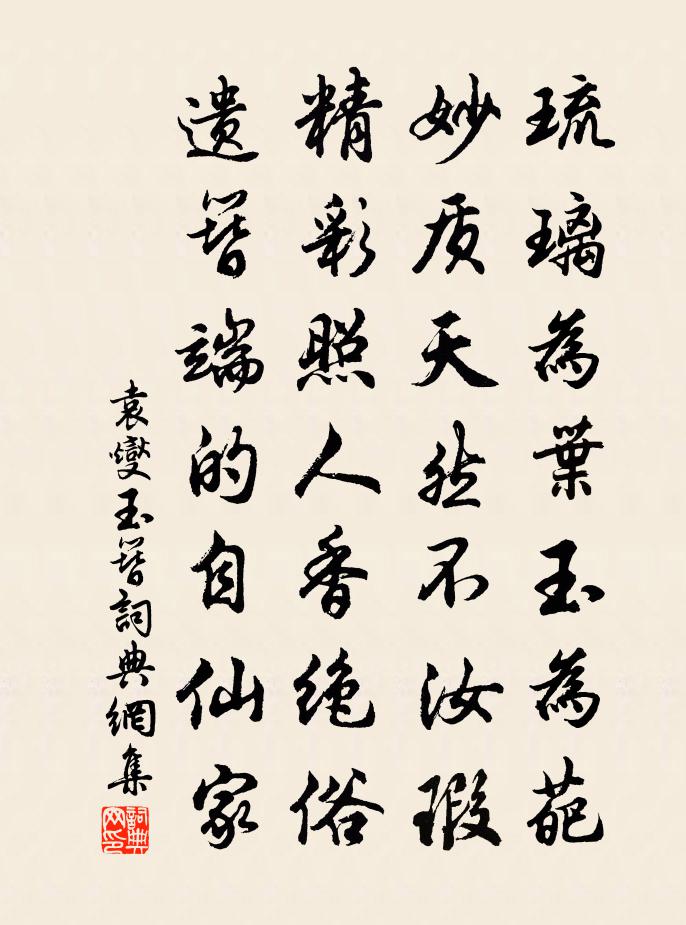 琉璃為葉玉為葩
妙质天然不汝瑕
精彩照人香绝俗
遗簪端的自仙家
袁燮玉簪詞典網集
詞典网印